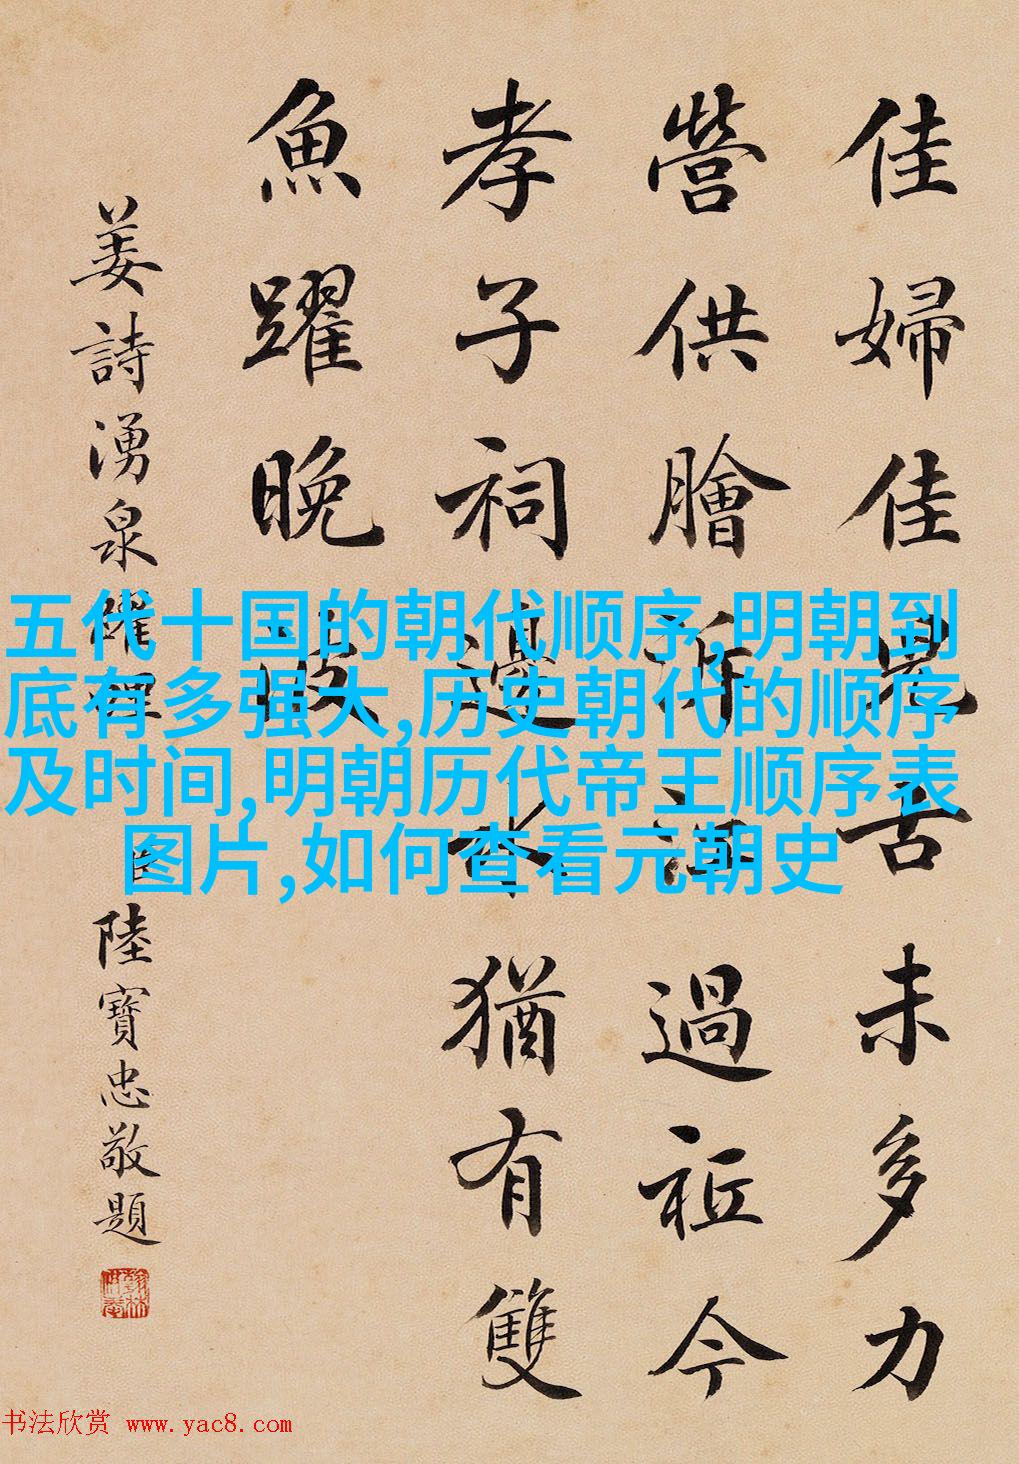 佳婦佳兒苦未多力
營供膾泝江過祗今
孝子祠邊水猶有雙
魚躍晚波
姜詩湧泉躍鯉 臣陸寶忠敬題
五代十国的朝代顺序,明朝到
底有多强大,历史朝代的顺序
及时间,明朝历代帝王顺序表
图片,如何查看元朝史
书法欣赏 www.yac8.com